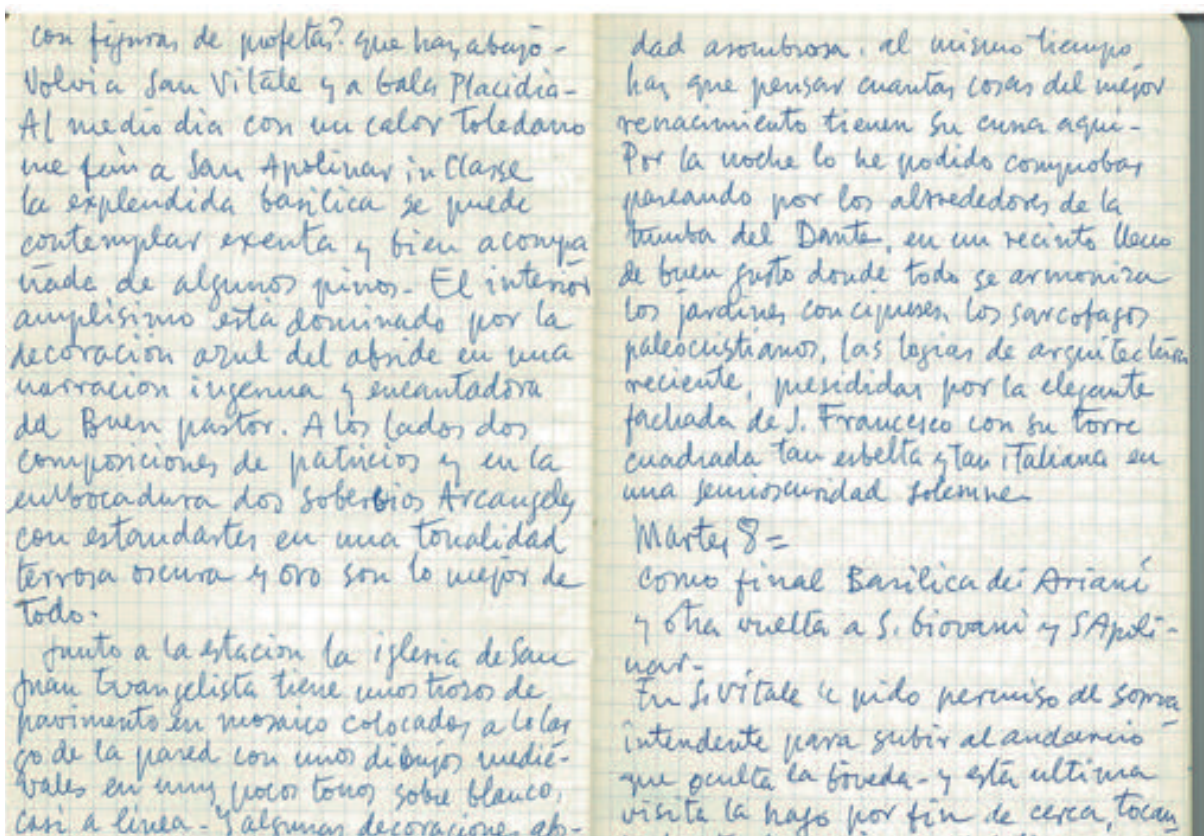 con figuras de profetas? que hay abajo-
Volvi a San Vitale y a Gala Placidia-
Al medio dia con un calor Toledano
me fuí a San Apolinar in Classe
la explendida basilica se puede
contemplar exenta y bien acompa
ñada de algunos pinos- El interior
amplisimo está dominado por la
decoración azul del abside en una
narracion ingenua y encantadora
del Buen pastor. A los lados dos
composiciones de patricios y en la
embocadura dos soberbios Arcangeles
con estandartes en una tonalidad
terrosa oscura y oro son lo mejor de
todo.
Junto a la estacion la iglesia de San
Juan Evangelista tiene unos trozos de
pavimento en mosaico colocados a lo lar
go de la pared con unos dibujos medie-
vales en muy pocos tonos sobre blanco,
casi a linea- Y algunas decoraciones ab-
dad asombrosa. al mismo tiempo
hay que pensar cuantas cosas del mejor
renacimiento tienen su cuna aqui-
Por la noche lo he podido comprobar
paseando por los alrededores de la
tumba del Dante, en un recinto lleno
de buen gusto donde todo se armoniza
los jardines con cipreses, los sarcofagos
paleocristianos, las logias de arquitectura
reciente, presididas por la elegante
fachada de S. Francesco con su torre
cuadrada tan esbelta y tan italiana en
una semioscuridad solemne-
Martes 8=
como final Basilica dei Ariani
y otra vuelta a S. Giovani y S Apoli-
nar-
En S. Vitale le pido permiso al sopra
intendente para subir al andamio
que oculta la bóveda- y esta ultima
visita la hago por fin de cerca, tocan